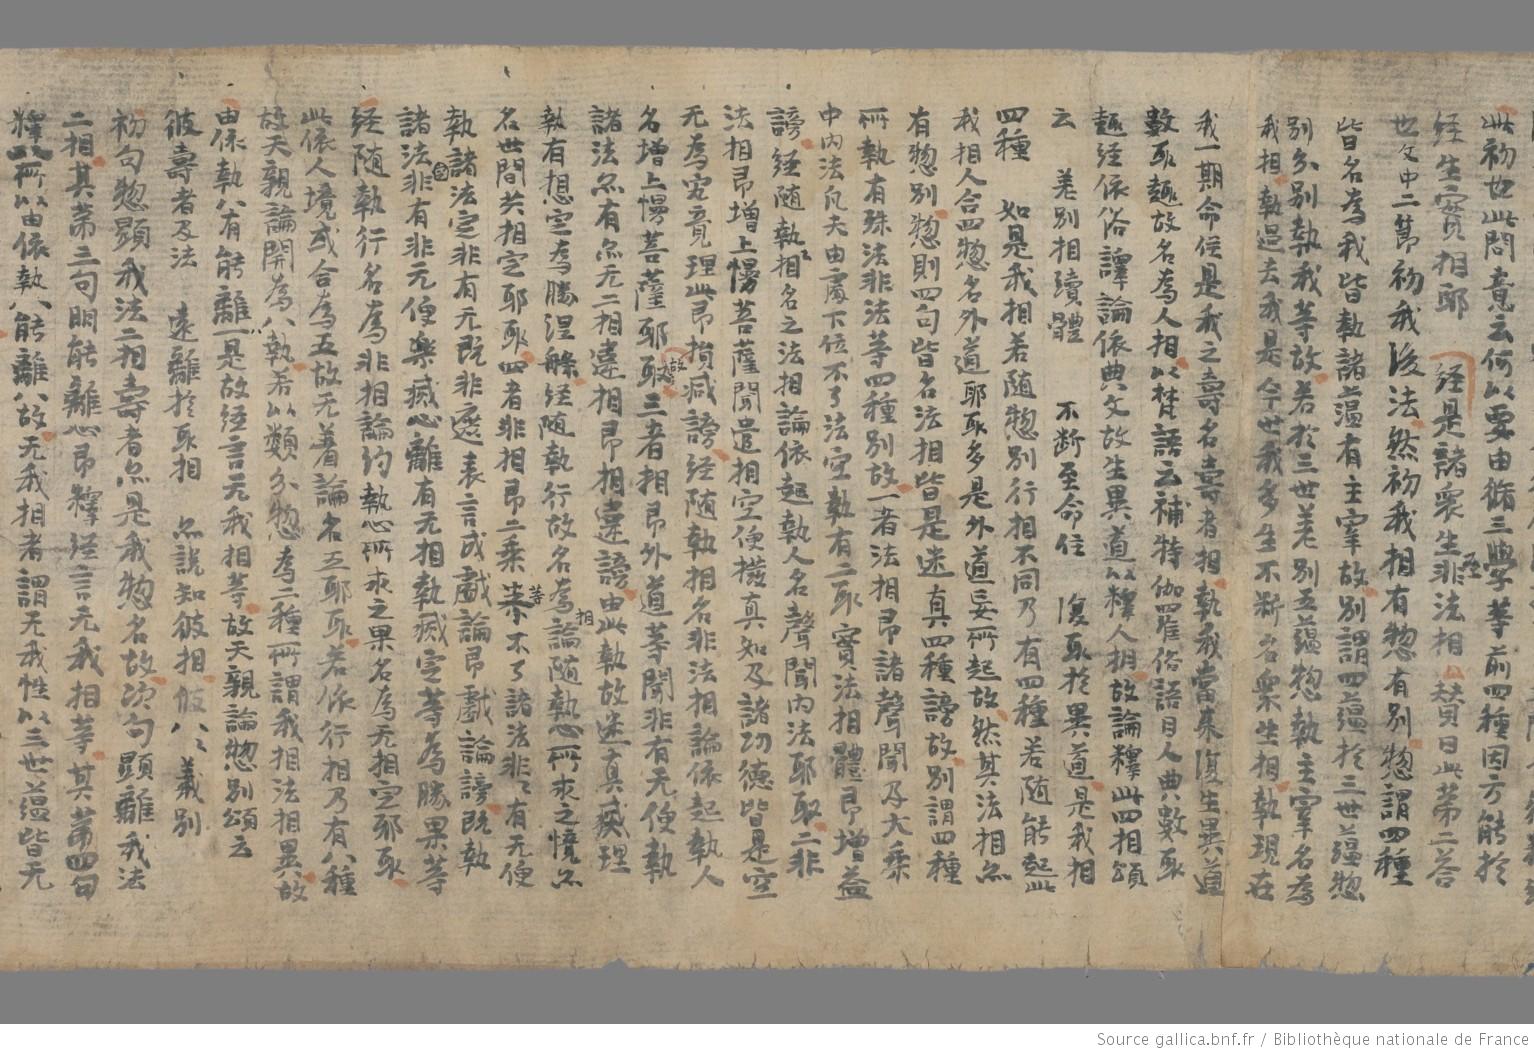 此初也此問意云何以要由脩三與学等前四種因方能於
経生實相耶 経是諸衆生至非法相 賛曰此第二荅
也文中二節初我後法然初我相有惣有別惣謂四種
皆名為我皆執諸蕴有主宰故別謂四蕴於三世蕴惣
別分別執我等故若於三世差別五蕴惣執主宰名為
我相執過去我是今世我多生不断名衆生相執現在
我一期命住是我之壽名壽者相執我當来復生異道
數取趣故名為人相以梵語云補特伽羅俗語曰人典數取
趣経依俗譯論依典文故生異道以釋人相故論釋此四相頌
云 差別相續體 不断至命住 復取於異道是我相
四種 如是我相若随惣別行相不同乃有四種若随能起此
我相人合四惣名外道耶取多是外道妄所起故然其法相亦
有惣別惣則四句皆名法相皆是迷真四種謗故別謂四種
所執有殊法非法等四種別故一者法相即諸聲聞及大乘
中内法凡夫由處下位不了法空執有二取實法相體即增益
謗経随執相名之法相論依起執人名聲聞内法耶取二非
法相即增上慢菩薩聞遣相空便撥真如及諸功德皆是空
无為究竟理此即損减謗故経随執相名非法相論依起執人
名增上慢菩薩耶取三者相即外道等聞非有无便執
諸法亦有亦无二相違相即相違謗由此執故迷真癡理
執有想定為勝涅槃経随執行故名為相論随執心所求之境亦
名世間共相定耶取四者非相即二乘等不了諸法非有无便
執諸法定非有无既非遮表言成戯論即戯論謗既執
諸法非有非无便樂滅心離有无相執滅定等為勝果等
経随執行名為非相論約執心所求之果名為无相定耶取
此依人境或合為五故无著論名五耶取若依行相乃有八種
故天親論開為八執若以類分惣為二種所謂我相法相異故
由依執八有能離一是故経言无我相等故天親論惣別頌云
彼壽者及法 遠離於取相 亦說知彼相 依八八義別
初句惣顯我法二相壽者亦是我惣名故次句顯離我法
二相其第三句明能離心即釋経言无我相等其第四句
釋以所以由依執八能離八故无我相者謂无我性以三世蕴皆无